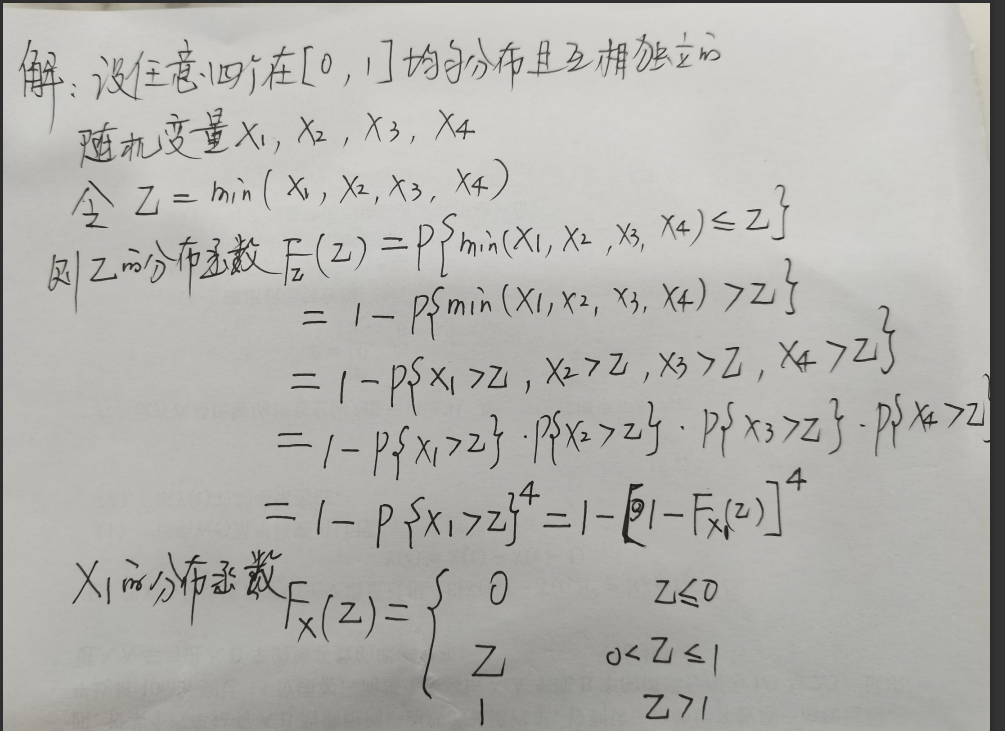 解：设任意四个在[0，1]均匀分布且互相独立的
随机变量X₁，X₂，X₃，X₄
令 Z = min( X₁，X₂，X₃，X₄)
则Z的分布函数 F_Z(Z) = P{min(X₁，X₂，X₃，X₄) ≤ Z}
= 1 - P{min(X₁，X₂，X₃，X₄) > Z}
= 1 - P{X₁ > Z，X₂ > Z，X₃ > Z，X₄ > Z}
= 1 - P{X₁ > Z} · P{X₂ > Z} · P{X₃ > Z} · P{X₄ > Z}
= 1 - P{X₁ > Z}⁴ = 1 - [1 - F_X₁(Z)]⁴
X₁的分布函数 F_X(Z) = { 0 Z ≤ 0
Z 0 < Z ≤ 1
1 Z > 1